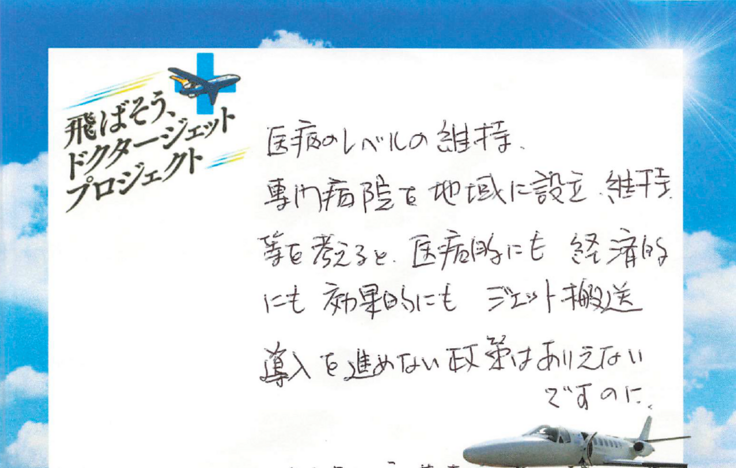 飛ばそう、
ドクタージェット
プロジェクト
医療のレベルの維持、
専門病院を地域に設立、維持
等を考えると、医療的にも 経済的
にも 効果的にも ジェット搬送
導入を進めない政策はありえない
ですのに。